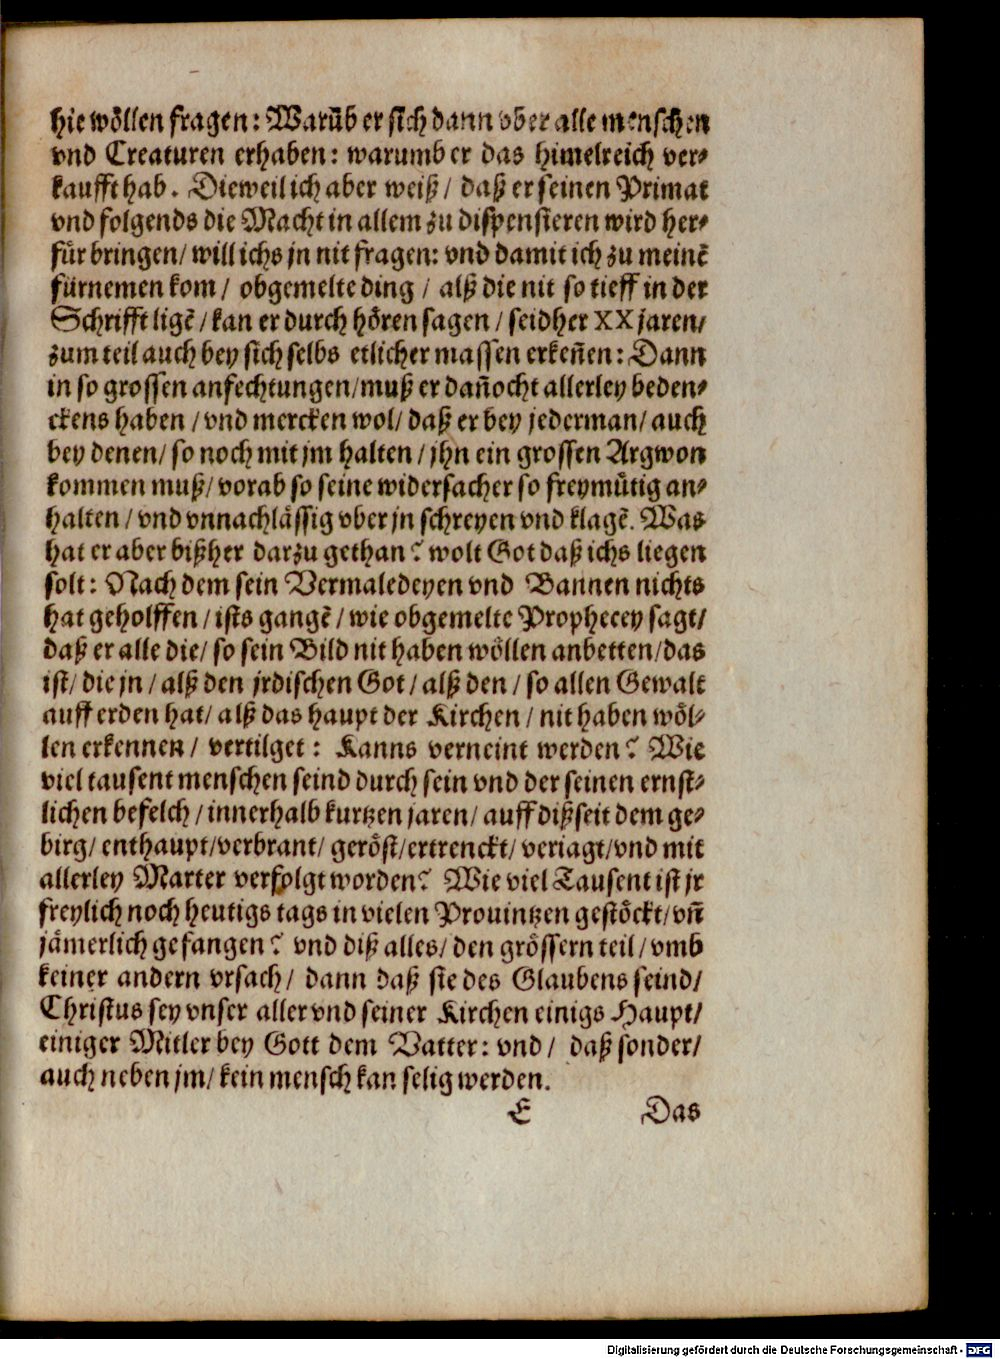 hie wöllen fragen: Warūb er sich dann vber alle menschen
vnd Creaturen erhaben: warumb er das himelreich ver⸗
kaufft hab. Dieweil ich aber weiß/ daß er seinen Primat
vnd folgends die Macht in allem zu dispensieren wird her⸗
für bringen/ will ichs jn nit fragen: vnd damit ich zu meinē
fürnemen kom/ obgemelte ding/ alß die nit so tieff in der
Schrifft ligē/ kan er durch hören sagen/ seidher XX jaren/
zum teil auch bey sich selbs etlicher massen erkeñen: Dann
in so grossen anfechtungen/ muß er dañocht allerley beden⸗
ckens haben/ vnd mercken wol/ daß er bey jederman/ auch
bey denen/ so noch mit jm halten/ jhn ein grossen Argwon
kommen muß/ vorab so seine widersacher so freymütig an⸗
halten/ vnd vnnachlässig vber jn schreyen vnd klagē. Was
hat er aber bißher darzu gethan? wolt Got daß ichs liegen
solt: Nach dem sein Vermaledeyen vnd Bannen nichts
hat geholffen/ ists gangē/ wie obgemelte Prophecey sagt/
daß er alle die/ so sein Bild nit haben wöllen anbetten/ das
ist/ die jn/ alß den jrdischen Got/ alß den/ so allen Gewalt
auff erden hat/ alß das haupt der Kirchen/ nit haben wöl⸗
len erkennen/ vertilget: Kanns verneint werden? Wie
viel tausent menschen seind durch sein vnd der seinen ernst⸗
lichen befelch/ innerhalb kurtzen jaren/ auff dißseit dem ge⸗
birg/ enthaupt/ verbrant/ geröst/ ertrenckt/ veriagt/ vnd mit
allerley Marter verfolgt worden? Wie viel Tausent ist jr
freylich noch heutigs tags in vielen Prouintzen gestöckt/ vñ
jämerlich gefangen? vnd diß alles/ den grössern teil/ vmb
keiner andern vrsach/ dann daß sie des Glaubens seind/
Christus sey vnser aller vnd seiner Kirchen einigs Haupt/
einiger Mitler bey Gott dem Vatter: vnd/ daß sonder/
auch neben jm/ kein mensch kan selig werden.
E Das
Digitalisierung gefördert durch die Deutsche Forschungsgemeinschaft - DFG